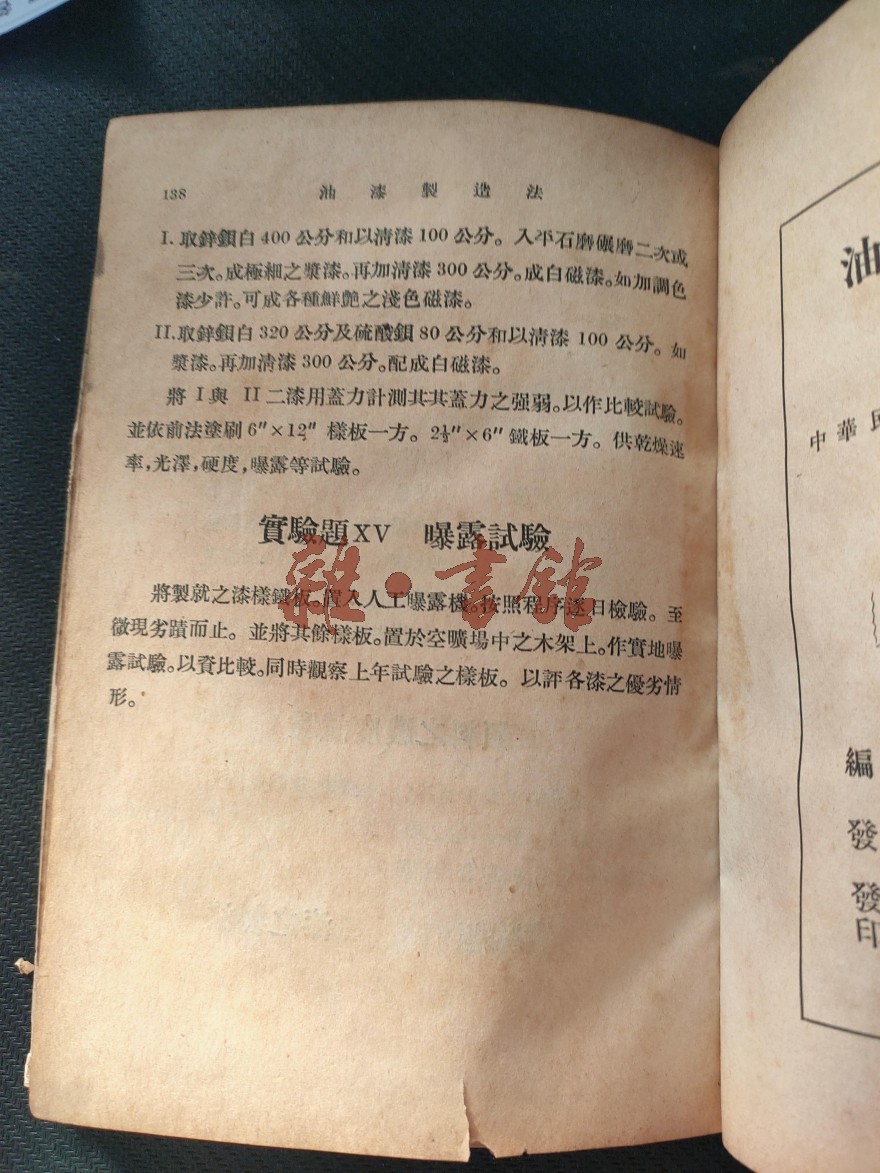 138 油漆製造法
I. 取鋅鋇白 400 公分和以清漆 100 公分。入平石磨碾磨二次或
三次。成極細之漿漆。再加清漆 300 公分。成白磁漆。如加調色
漆少許。可成各種鮮艷之淺色磁漆。
II. 取鋅鋇白 320 公分及硫酸鋇 80 公分和以清漆 100 公分。如
漿漆。再加清漆 300 公分。配成白磁漆。
將 I 與 II 二漆用蓋力計測其其蓋力之强弱。以作比較試驗。
並依前法塗刷 6″×12″ 樣板一方。2½″×6″ 鐵板一方。供乾燥速
率，光澤，硬度，曝露等試驗。
實驗題 XV 曝露試驗
將製就之漆樣鐵板。置入人工曝露機。按照程序逐日檢驗。至
微現劣蹟而止。並將其餘樣板。置於空曠場中之木架上。作實地曝
露試驗。以資比較。同時觀察上年試驗之樣板。以評各漆之優劣情
形。
雜·書館
油
中華民
編
發
發
印